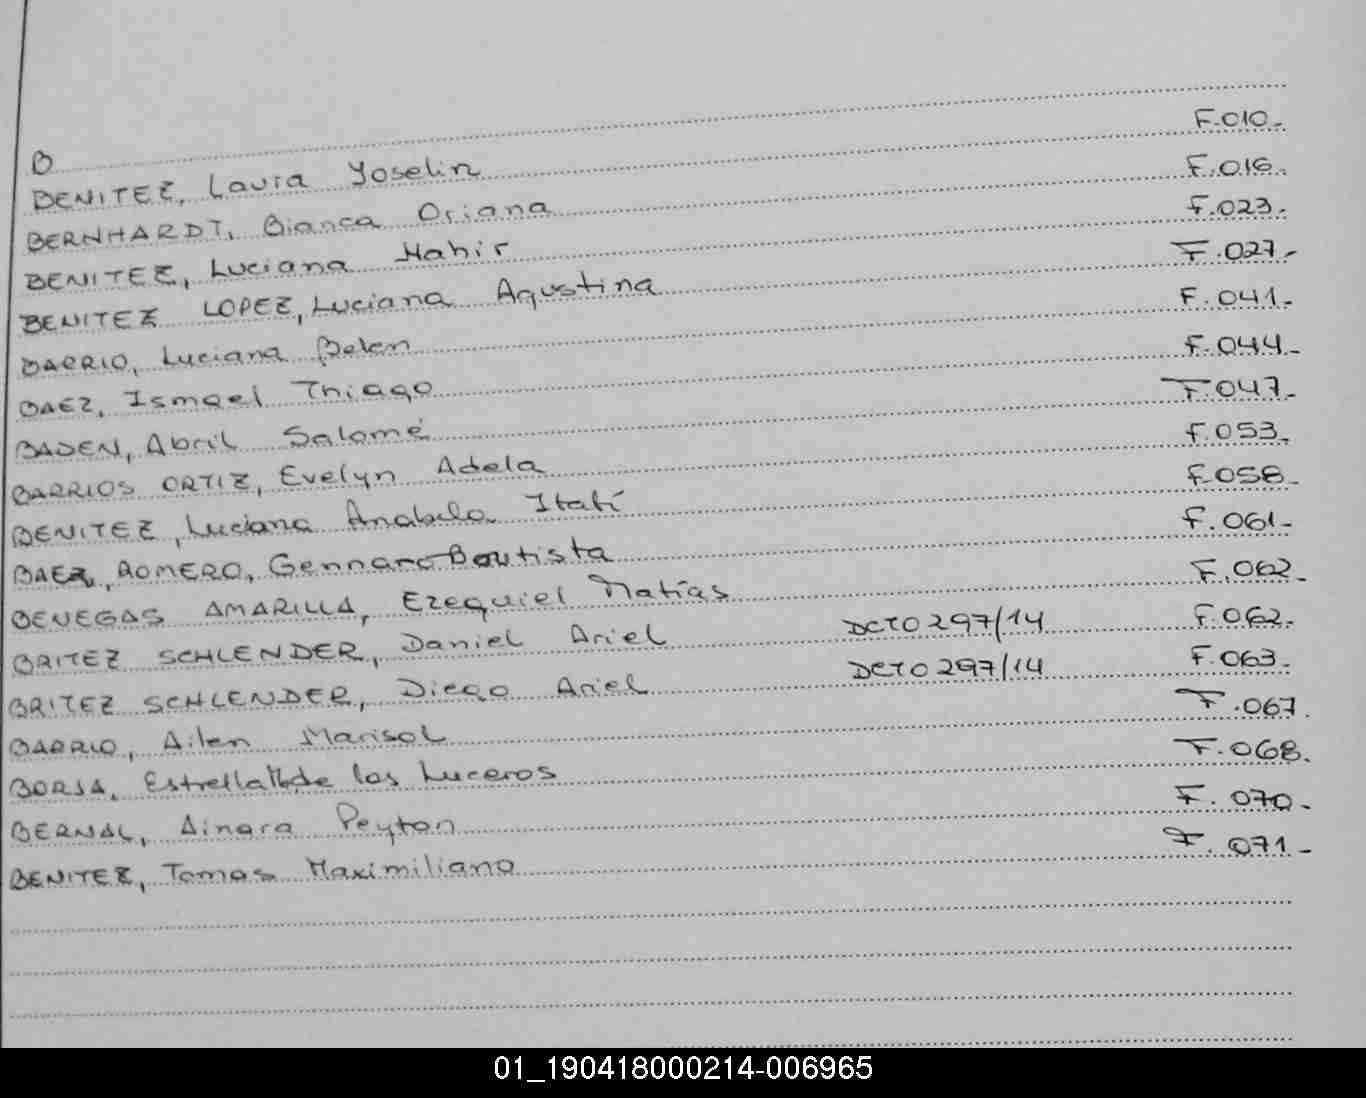 B
BENITEZ, Laura Yoselin F.010.-
BERNHARDT, Bianca Oriana F.016.-
BENITEZ, Luciana Nahir F.023.-
BENITEZ LOPEZ, Luciana Agustina F.027.-
BARRIO, Luciana Belen F.041.-
BAEZ, Ismael Thiago F.044.-
BADEN, Abril Salomé F.047.-
BARRIOS ORTIZ, Evelyn Adela F.053.-
BENITEZ, Luciana Anabela Itatí F.058.-
BAEZ, ROMERO, Gennaro Bautista F.061.-
BENEGAS AMARILLA, Ezequiel Matías F.062.-
BRITEZ SCHLENDER, Daniel Ariel DCTO 297/14 F.062.-
BRITEZ SCHLENDER, Diego Ariel DCTO 297/14 F.063.-
BARRIO, Ailen Marisol F.067.
BORJA, Estrella de los Luceros F.068.
BERNAL, Ainara Peyton F.070.-
BENITEZ, Tomas Maximiliano F.071.-
01_190418000214-006965